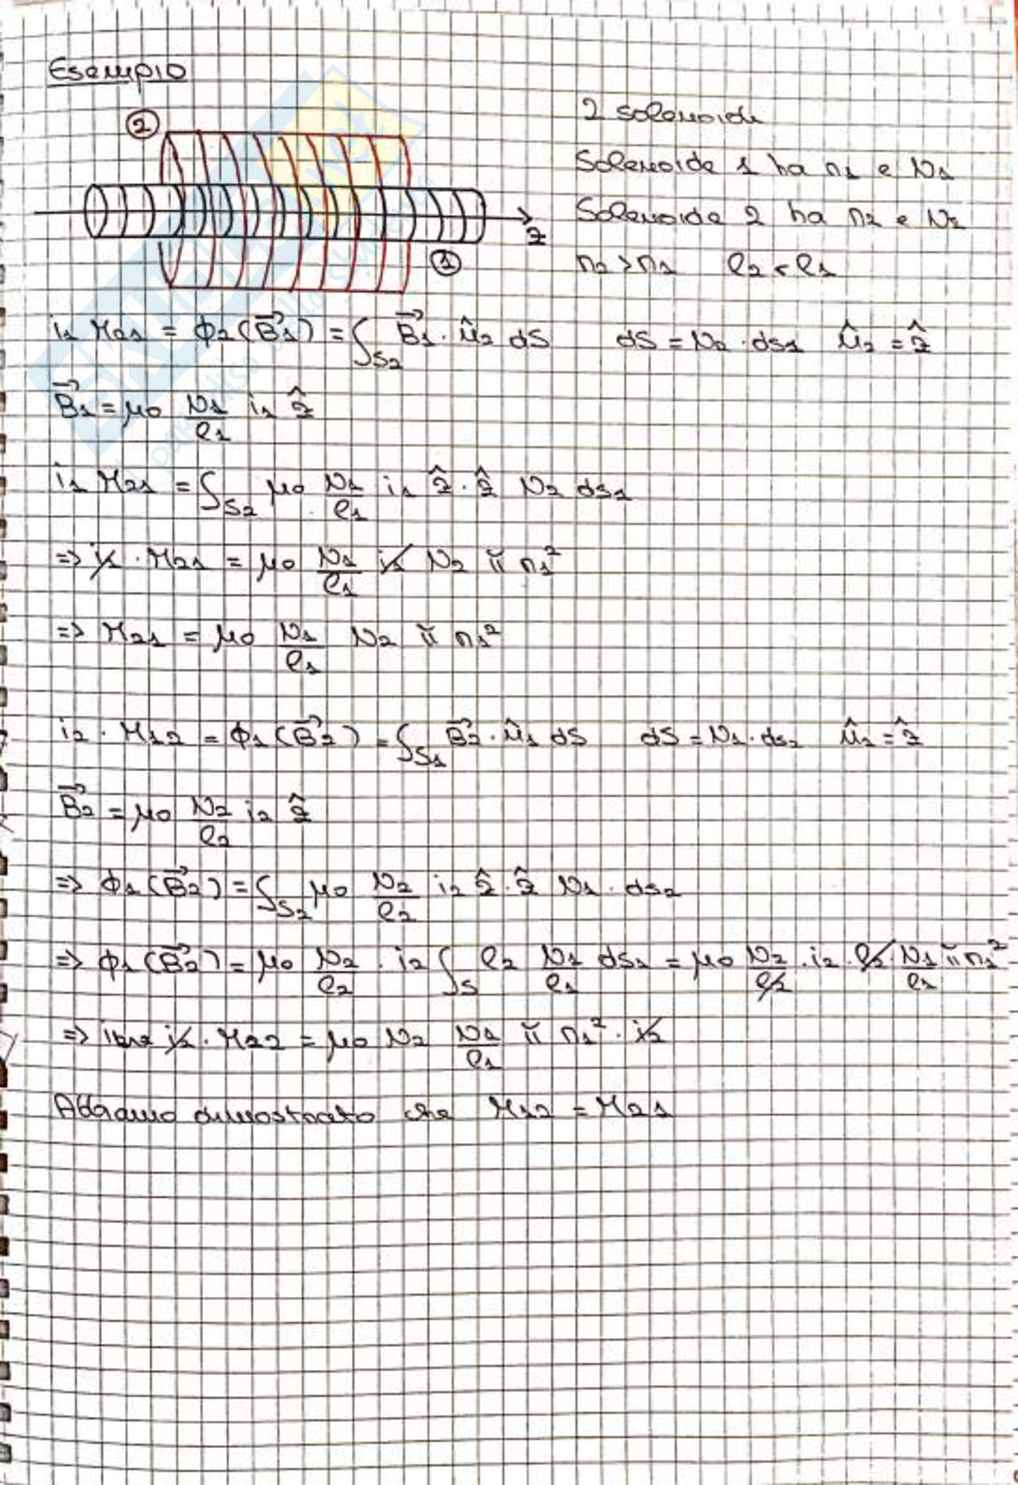 Esempio
2 solenoidi
Solenoide 1 ha r₁ e N₁
Solenoide 2 ha r₂ e N₂
r₂ > r₁ ℓ₂ < ℓ₁
② ① z
i₁ M₂₁ = ϕ₂(B⃗₁) = ∫_S₂ B⃗₁ · û₂ dS dS = N₂ · ds₁ û₂ = ẑ
B⃗₁ = μ₀ N₁/ℓ₁ i₁ ẑ
i₁ M₂₁ = ∫_S₂ μ₀ N₁/ℓ₁ i₁ ẑ · ẑ N₂ ds₁
=> i₁ · M₂₁ = μ₀ N₁/ℓ₁ i₁ N₂ π r₁²
=> M₂₁ = μ₀ N₁/ℓ₁ N₂ π r₁²
i₂ · M₁₂ = ϕ₁(B⃗₂) = ∫_S₁ B⃗₂ · û₁ dS dS = N₁ · ds₂ û₂ = ẑ
B⃗₂ = μ₀ N₂/ℓ₂ i₂ ẑ
=> ϕ₁(B⃗₂) = ∫_S₂ μ₀ N₂/ℓ₂ i₂ ẑ · ẑ N₁ · ds₂
=> ϕ₁(B⃗₂) = μ₀ N₂/ℓ₂ · i₂ ∫_S ℓ₂ N₁/ℓ₁ ds₁ = μ₀ N₂/ℓ₂ · i₂ · ℓ₂ · N₁/ℓ₁ π r₁²
=> i₂ · M₂₂ = μ₀ N₂ N₁/ℓ₁ π r₁² · i₂
Abbiamo dimostrato che M₁₂ = M₂₁